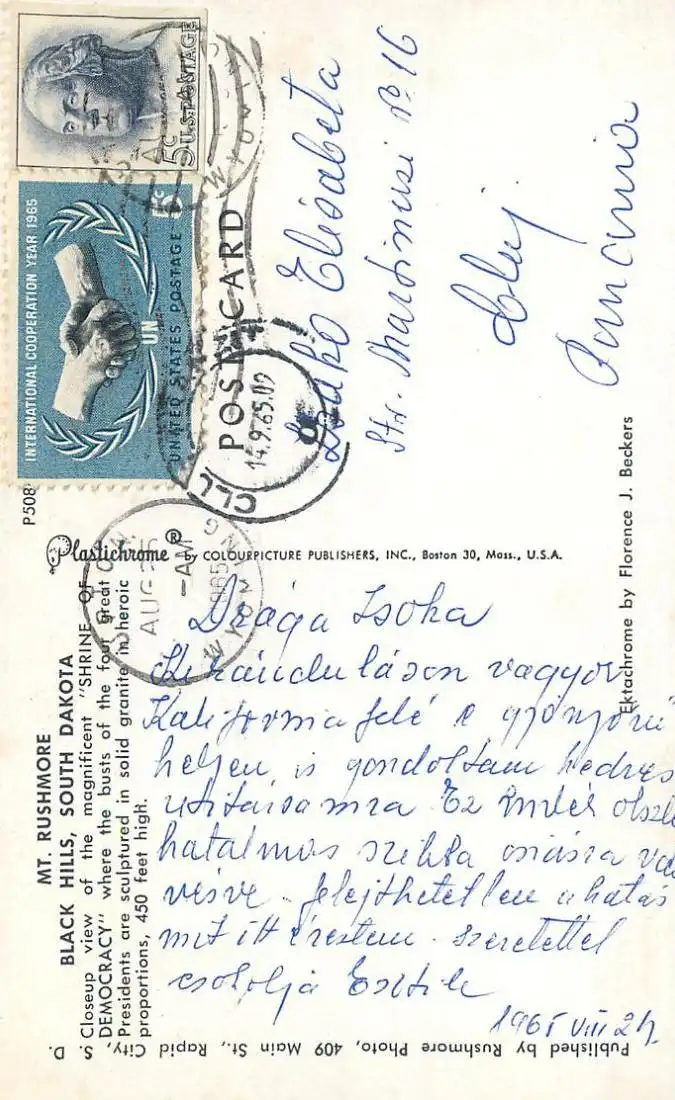 5c
U.S. POSTAGE
INTERNATIONAL COOPERATION YEAR 1965
UN
5c
UNITED STATES POSTAGE
POST CARD
WYOMING
CLUJ
14.9.65.09
9
Elisabeta
Str. Martinuzi No 16
Cluj
Romania
P508
Plastichrome® by COLOURPICTURE PUBLISHERS, INC., Boston 30, Mass., U.S.A.
AUG 25
-AM
1965
WYOMING
MT. RUSHMORE
BLACK HILLS, SOUTH DAKOTA
Closeup view of the magnificent "SHRINE OF
DEMOCRACY" where the busts of the four great
Presidents are sculptured in solid granite in heroic
proportions, 450 feet high.
Drága Zsoka
Kiránduláson vagyok
Kalifornia felé e gyönyörü
helyen is gondoltam kedves
utitársamra Ez ember
hatalmas szikla
vésve. felejthetetlen a hatás
mit itt éreztem. szeretettel
csokolja Esztike
1965 VIII 24.
Ektachrome by Florence J. Beckers
Published by Rushmore Photo, 409 Main St., Rapid City, S. D.